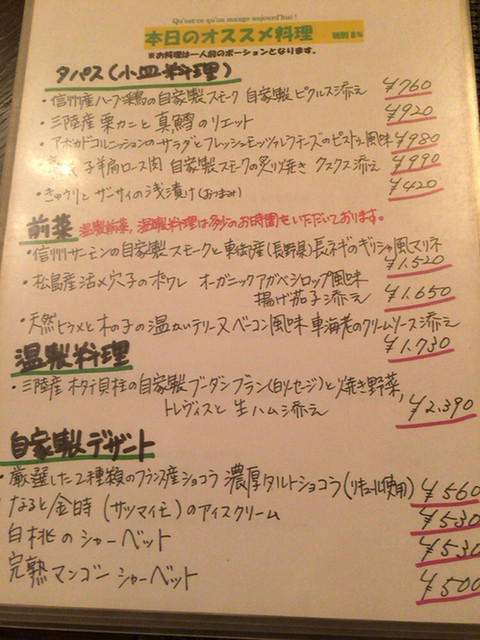 Qu'est ce qu'on mange aujourd'hui !
本日のオススメ料理 税別 8%
※お料理は一人前のポーションとなります。
タパス(小皿料理)
・信州産ハーブ鶏の自家製スモーク 自家製ピクルス添え ¥760
・三陸産 栗カニと真鱈のリエット ¥920
・アボカドコルニッションのサラダとフレッシュモッツァレラチーズのピストゥ風味 ¥980
子羊肩ロース肉 自家製スモークの炙り焼き クスクス添え ¥990
・きゅうりとザーサイの浅漬け(おつまみ) ¥420
前菜 温製前菜、温製料理は多少のお時間をいただいております。
・信州サーモンの自家製スモークと東御産(長野県)長ネギのギリシャ風マリネ
¥1.520
・松島産活〆穴子のポワレ オーガニックアガベシロップ風味
揚げ茄子添え ¥1.650
・天然ヒラメと木の子の温かいテリーヌ ベーコン風味 車海老のクリームソース添え
¥1.730
温製料理
・三陸産 ホタテ貝柱の自家製ブーダンブラン(白ソーセージ)と焼き野菜,
トレヴィスと生ハム添え ¥2.390
自家製デザート
・厳選した2種類のフランス産ショコラ 濃厚タルトショコラ(リキュール使用) ¥560
なると金時(サツマイモ)のアイスクリーム ¥530
白桃のシャーベット ¥530
完熟マンゴーシャーベット ¥500